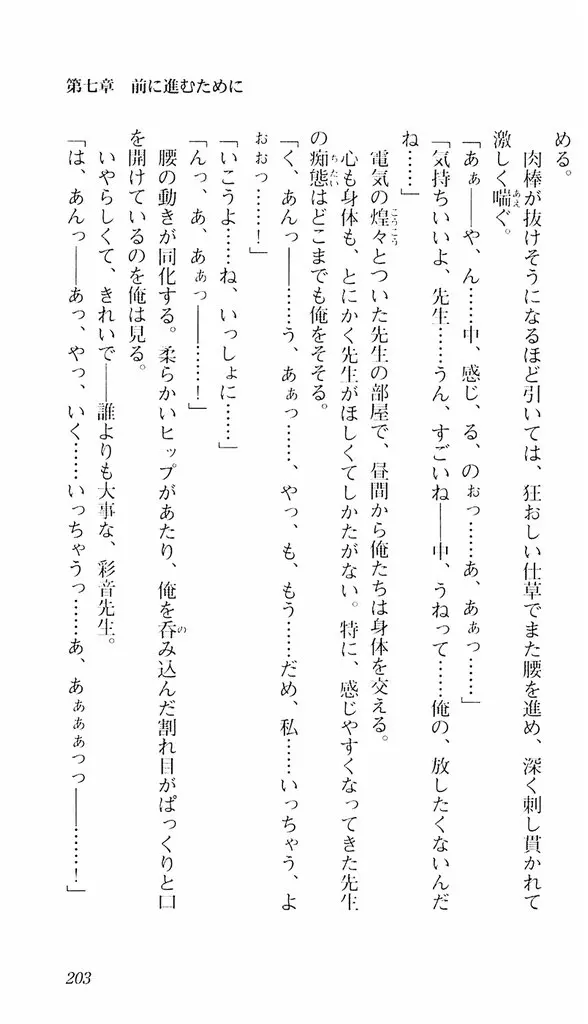 第七章　前に進むために
める。
肉棒が抜けそうになるほど引いては、狂おしい仕草でまた腰を進め、深く刺し貫かれて
激しく喘ぐ。
「あぁ――や、ん……中、感じ、る、のぉっ……あ、あぁっ……」
「気持ちいいよ、先生……うん、すごいね――中、うねって……俺の、放したくないんだ
ね……」
電気の煌々とついた先生の部屋で、昼間から俺たちは身体を交える。
心も身体も、とにかく先生がほしくてしかたがない。特に、感じやすくなってきた先生
の痴態はどこまでも俺をそそる。
「く、あんっ――……う、あぁっ……、やっ、も、もう……だめ、私……いっちゃう、よ
ぉぉっ……！」
「いこうよ……ね、いっしょに……」
「んっ、あ、あぁっ――……！」
腰の動きが同化する。柔らかいヒップがあたり、俺を呑み込んだ割れ目がぱっくりと口
を開けているのを俺は見る。
いやらしくて、きれいで――誰よりも大事な、彩音先生。
「は、あんっ――あっ、やっ、いく……いっちゃうっ……あ、あぁぁぁっっ――……！」
203